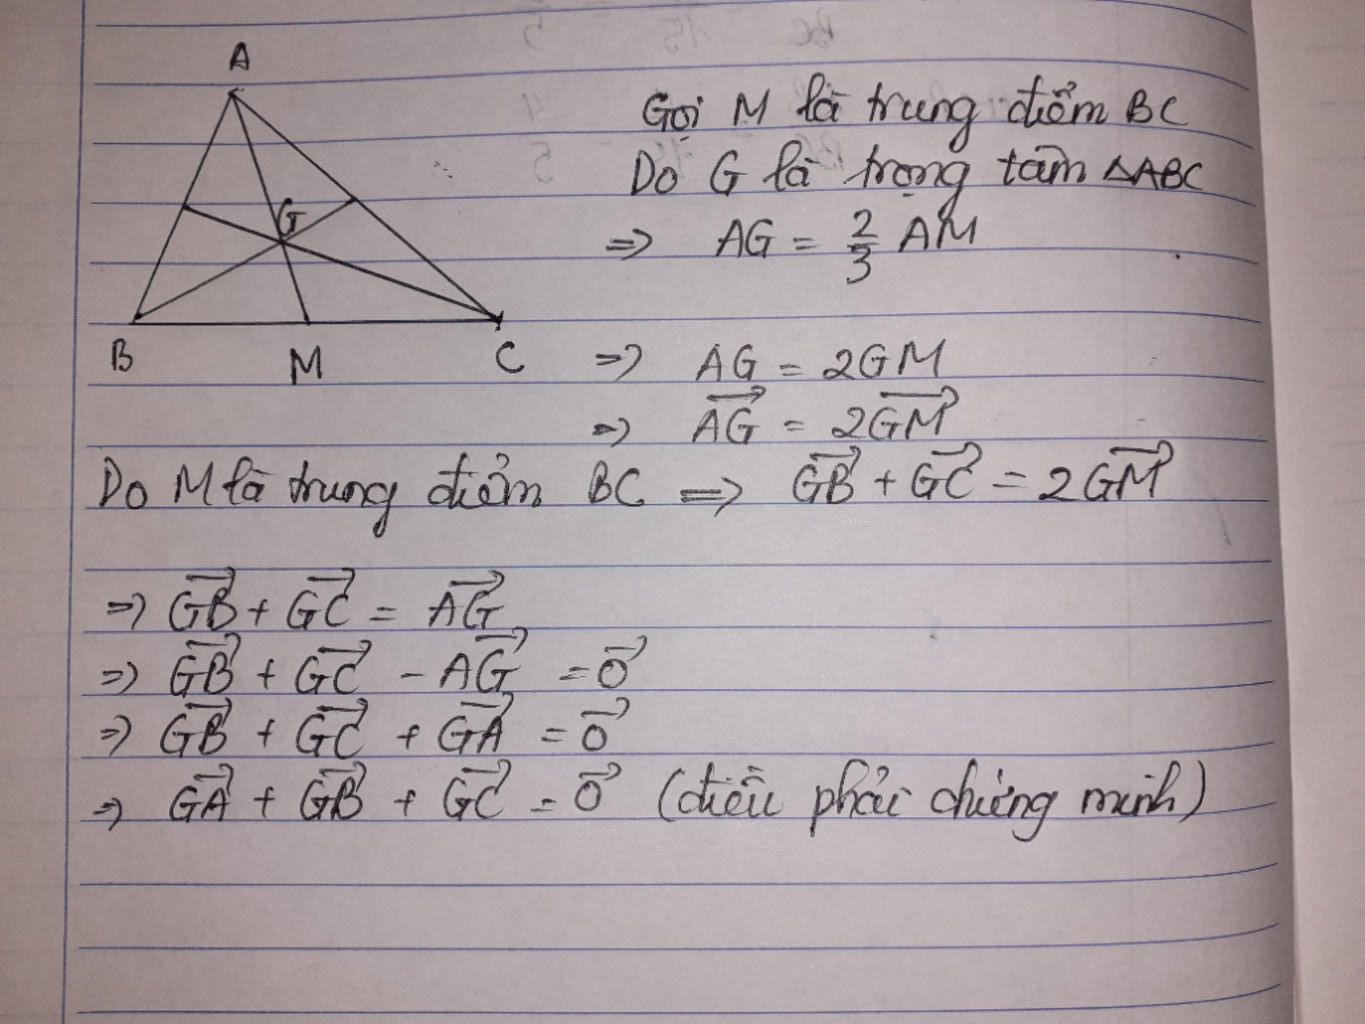 A
Gọi M là trung điểm BC
Do G là trọng tâm △ABC
G
⇒ AG = 2/3 AM
B M C
⇒ AG = 2GM
⇒ \overrightarrow{AG} = 2\overrightarrow{GM}
Do M là trung điểm BC ⇒ \overrightarrow{GB} + \overrightarrow{GC} = 2\overrightarrow{GM}
⇒ \overrightarrow{GB} + \overrightarrow{GC} = \overrightarrow{AG}
⇒ \overrightarrow{GB} + \overrightarrow{GC} - \overrightarrow{AG} = \overrightarrow{0}
⇒ \overrightarrow{GB} + \overrightarrow{GC} + \overrightarrow{GA} = \overrightarrow{0}
⇒ \overrightarrow{GA} + \overrightarrow{GB} + \overrightarrow{GC} = \overrightarrow{0} (điều phải chứng minh)